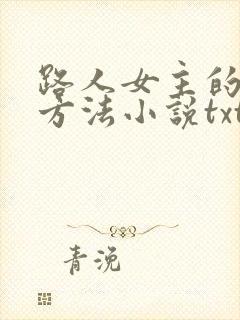 路人女主的
方法小説txt
青浼